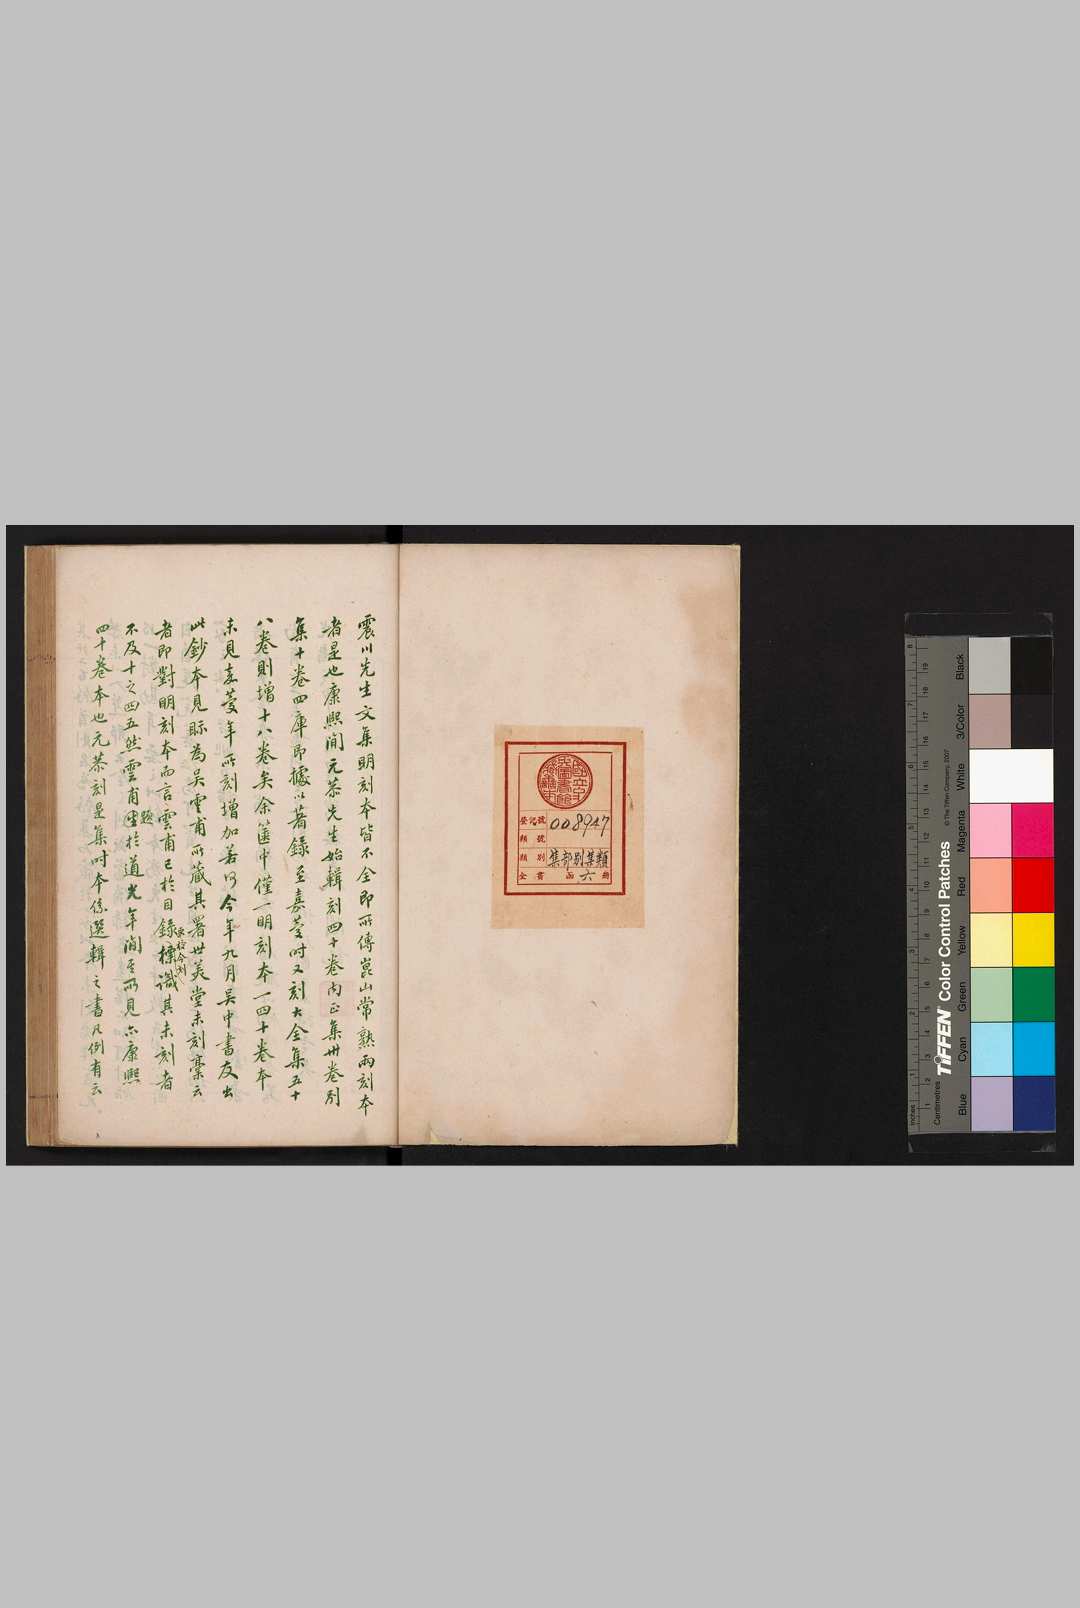 震川先生文集明刻本皆不全即所傳崑山常熟兩刻本
者是也康熙間元恭先生始輯刻四十卷内正集卅卷别
集十卷四庫即據以著錄至嘉慶时又刻大全集五十
八卷則增十八卷矣余篋中僅一明刻本一四十卷本
未見嘉慶年所刻增加若何今年九月吴中書友出
此鈔本見眎為吴雲甫所藏其署世美堂未刻藁云
者即對明刻本而言雲甫已於目錄標識其未刻者
不及十之四五然雲甫題於道光年間所見亦康熙
四十卷本也元恭刻是集时本係選輯之書凡例有云
國立中央圖書館
登記號 008947
類號
類別 集部别集類
全書 函 六 冊
TIFFEN Color Control Patches
© The Tiffen Company, 2007
Inches
Centimetres
Blue
Cyan
Green
Yellow
Red
Magenta
White
3/Color
Black